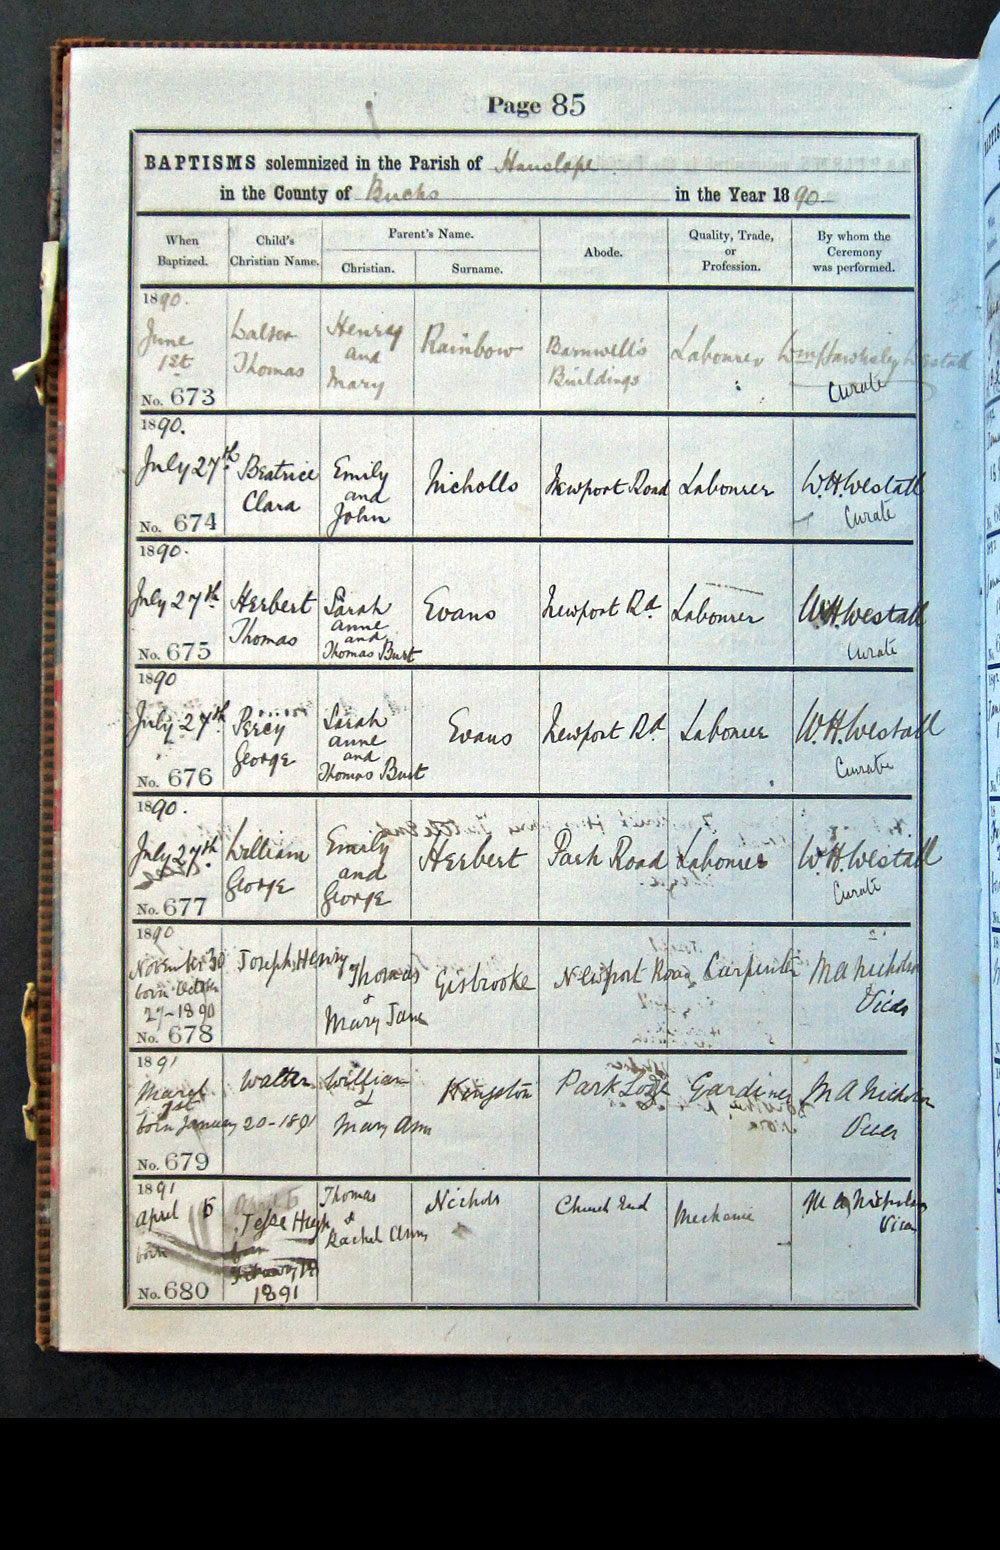 Page 85
BAPTISMS solemnized in the Parish of Hanslope
in the County of Bucks in the Year 1890
When Baptized.
Child's Christian Name.
Parent's Name.
Christian.
Surname.
Abode.
Quality, Trade, or Profession.
By whom the Ceremony was performed.
1890.
June 1st
No. 673
Thomas
Henry and Mary
Rainbow
Barnwell's Buildings
Labourer
Wm Westall
Curate
1890.
July 27th
No. 674
Beatrice Clara
Emily and John
Nicholls
Newport Road
Labourer
W.H. Westall
Curate
1890.
July 27th
No. 675
Herbert Thomas
Sarah anne and Thomas Burt
Evans
Newport Rd.
Labourer
W.H. Westall
Curate
1890
July 27th
No. 676
Percy George
Sarah anne and Thomas Burt
Evans
Newport Rd.
Labourer
W.H. Westall
Curate
1890.
July 27th
No. 677
William George
Emily and George
Herbert
Park Road
Labourer
W.H. Westall
Curate
1890
November 30
born October
27-1890
No. 678
Joseph Henry
Thomas & Mary Jane
Gisbrooke
Newport Road
Carpenter
M A Nicholson
Vicar
1891
March 1st
born January 20-1891
No. 679
Walter
William & Mary Ann
Kingston
Park Lodge
Gardiner
M A Nicholson
Vicar
1891
April 5
born
No. 680
April 5
Jesse Hugh
born
February 18
1891
Thomas & Rachel Ann
Nichols
Church End
Mechanic
M A Nicholson
Vicar